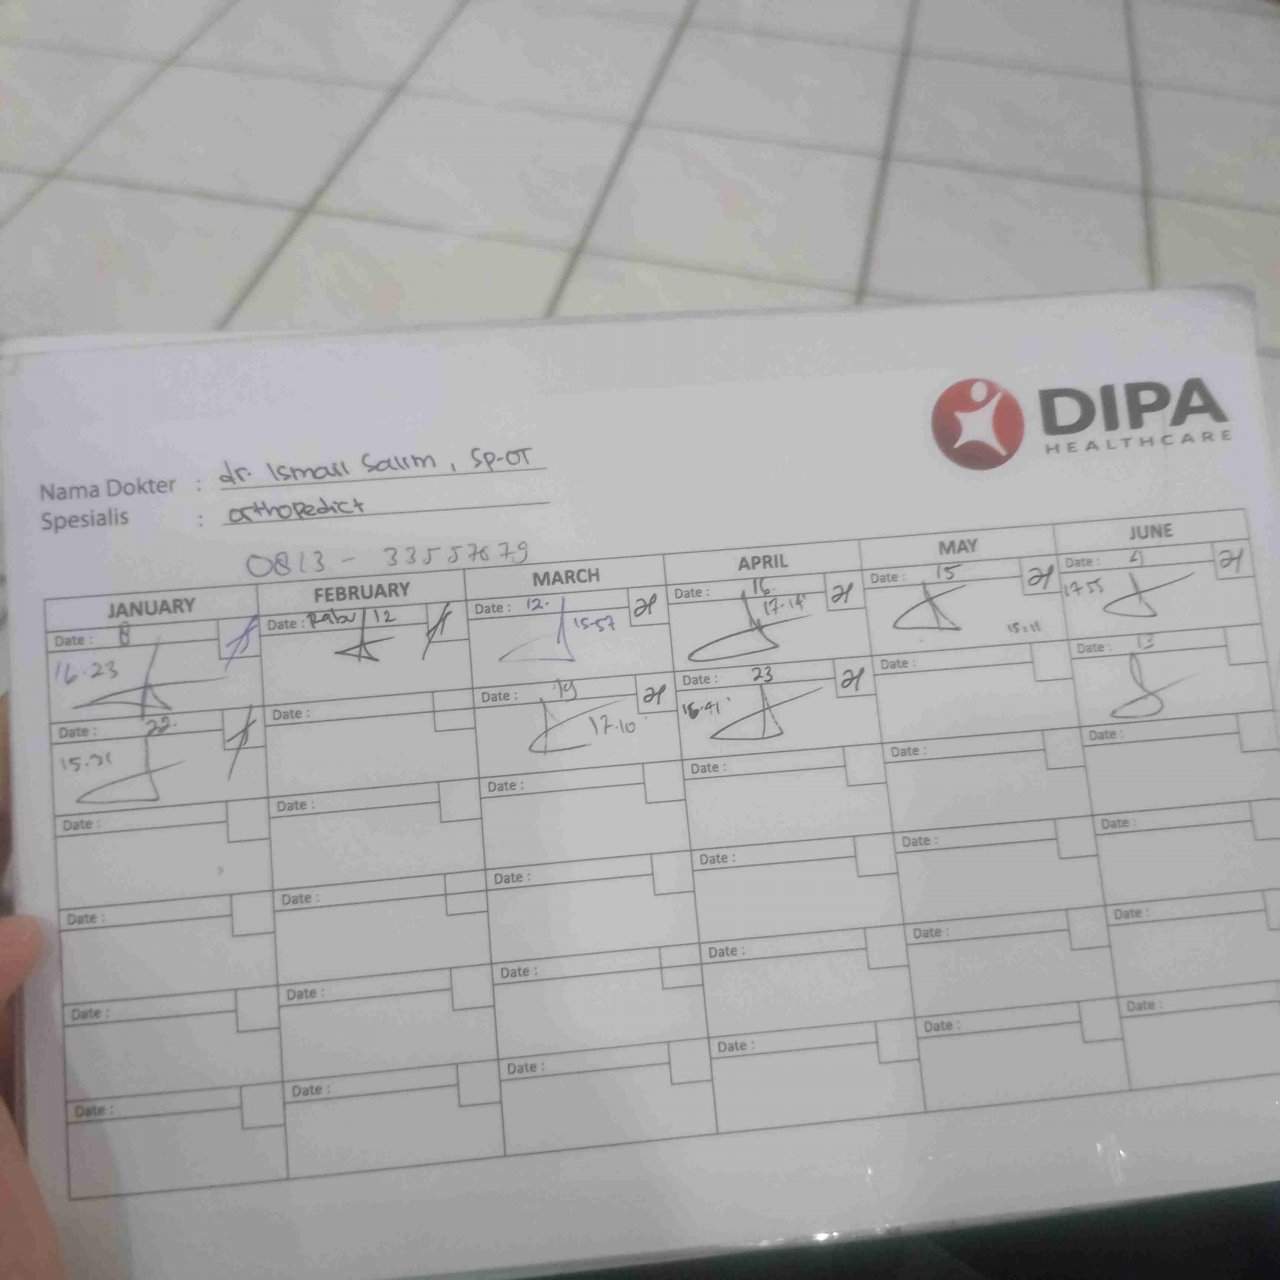 DIPA
HEALTHCARE
Nama Dokter : dr. Ismail Salim, Sp-OT
Spesialis : Orthopedict
0813 - 33557679
JANUARY FEBRUARY MARCH APRIL MAY JUNE
Date : 8 Date : Rabu / 12 Date : 12. Date : 16. Date : 15 Date : 4
16.23 15.57 17.14 15.11 17.55
Date : 22. Date : Date : 19 Date : 23 Date : Date : 13
15.21 17.10 16.41
Date : Date : Date : Date : Date : Date :
Date : Date : Date : Date : Date : Date :
Date : Date : Date : Date : Date : Date :
Date : Date : Date : Date : Date : Date :